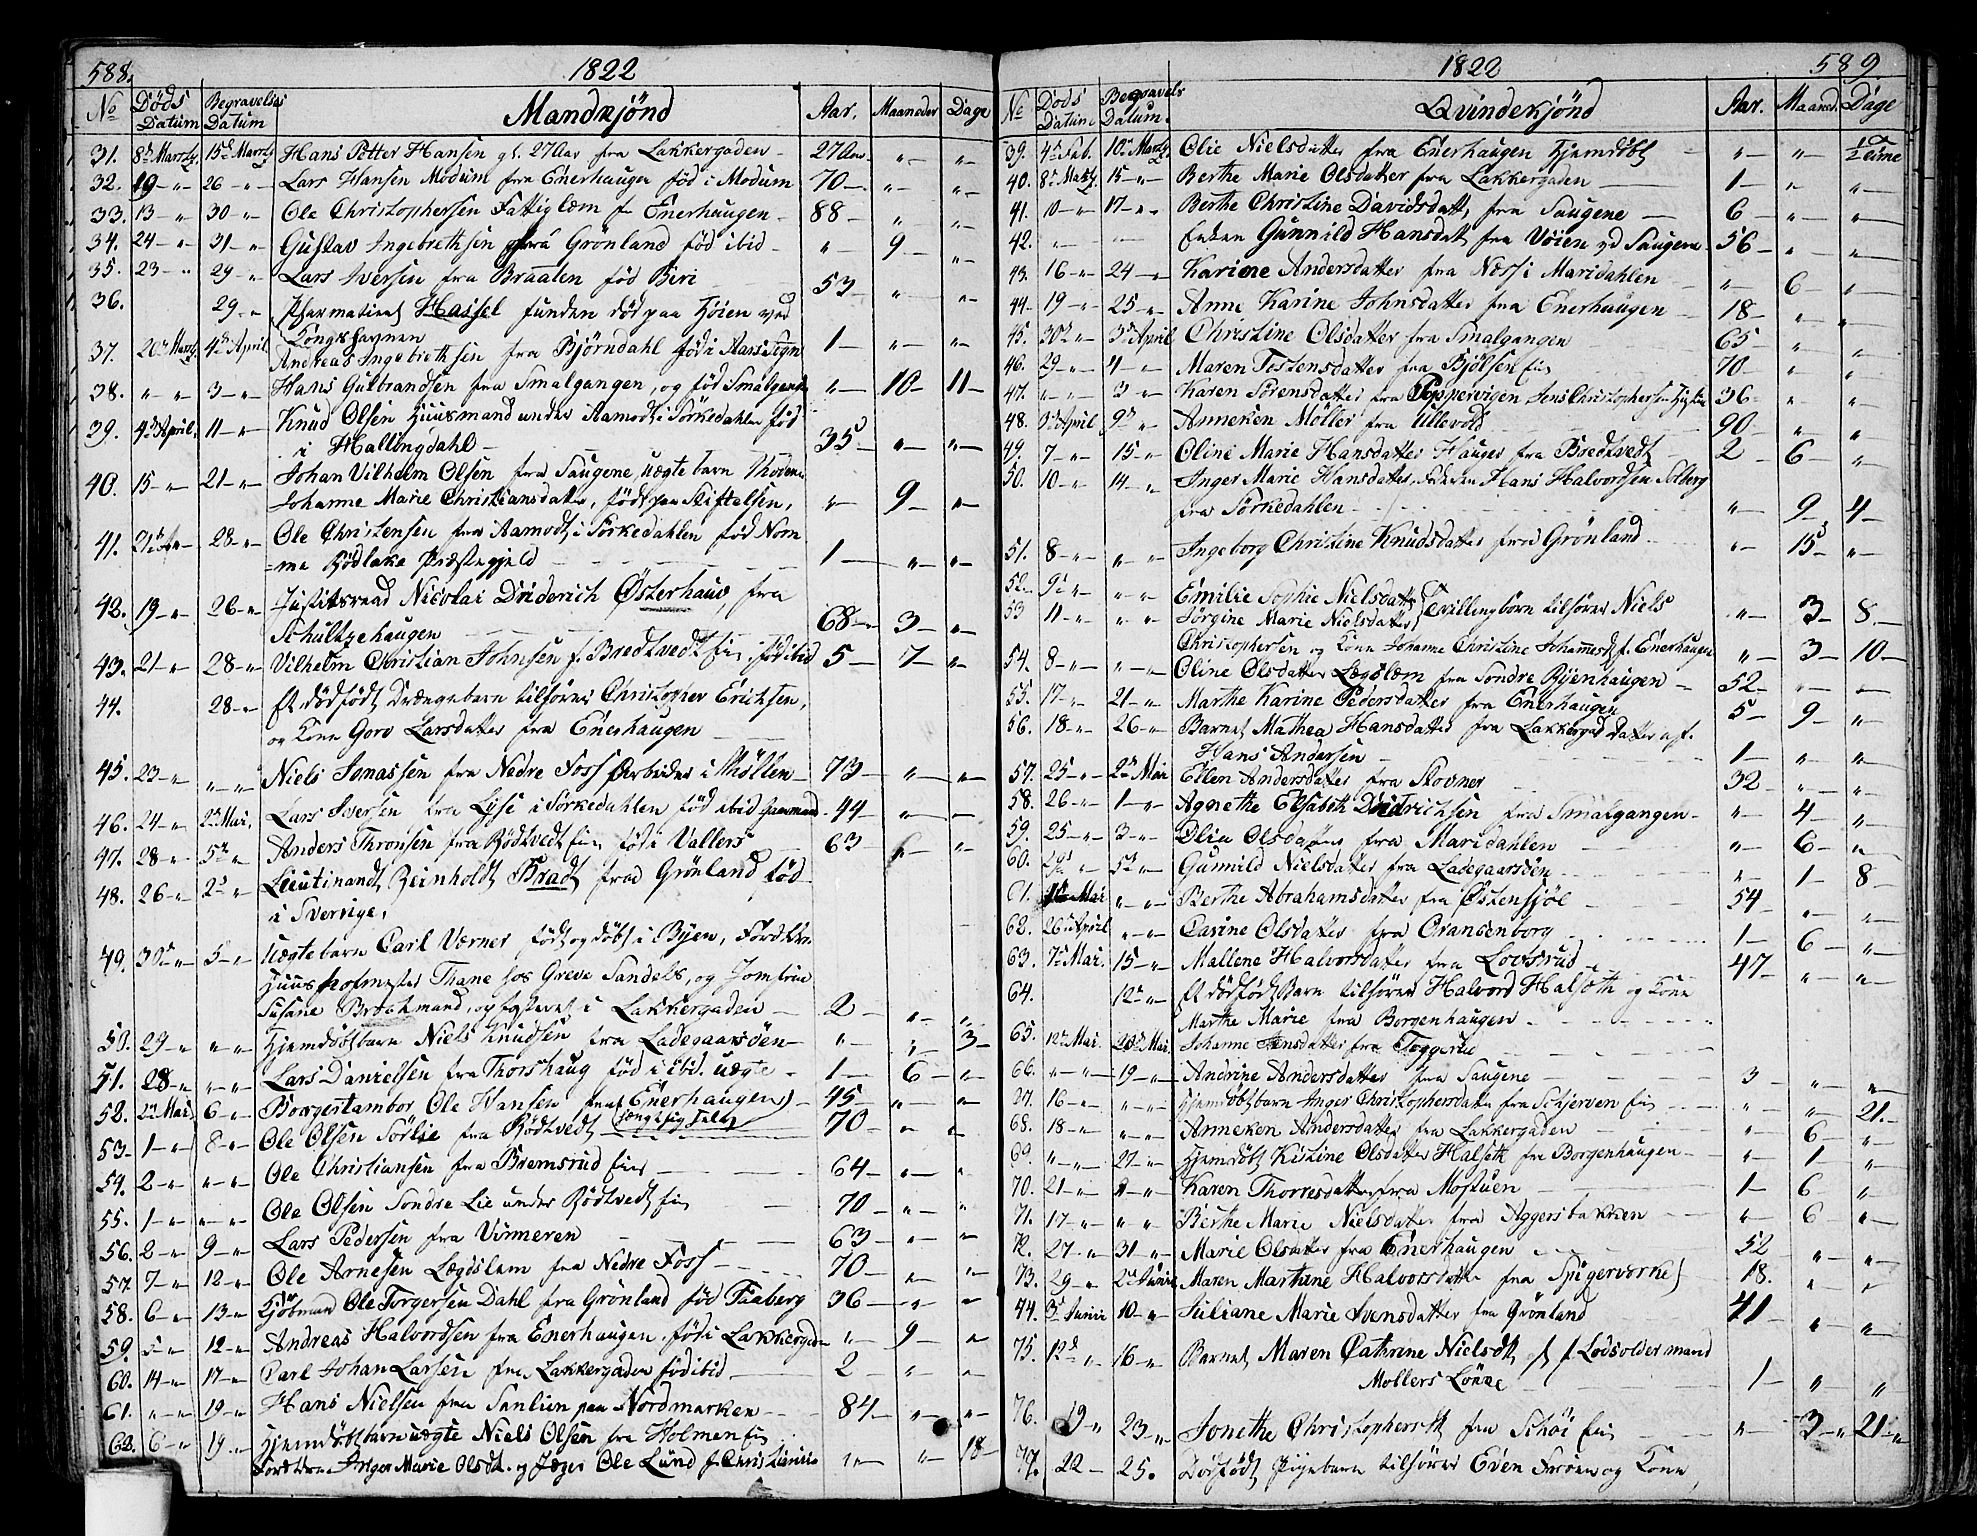 588.
1822
No Döds Datum Begravelses Datum Mandkjönd Aar. Maaneder Dage
31. 8de Martz. 15de Martz Hans Petter Hansen gl. 27 Aar fra Lakkergaden 27 Aar " "
32. 19 " 26 " Lars Hansen Modum fra Enerhaugen föd i Modum 70 " "
33. 13 " 30 " Ole Christophersen Fattiglem f. Enerhaugen 88 " "
34. 24 " 31 " Gustav Ingebrethsen fra Grönland föd ibid " 9 "
35. 23 " 29 " Lars Iversen fra Braalen föd Biri 53 " "
36. 29 " Pharmatient Hassel funden död paa Höien ved
Kongshavnen
37. 20de Martz. 4de April Andreas Ingebrethsen fra Björndahl föd i Hans Sogn 1 " "
38. " " 3 " Hans Gulbrandsen fra Smalgangen, og föd Smalgangen " 10 11
39. 4de April. 11 " Knud Olsen Huusmand under Aamodt i Sörkedahlen föd
i Hallingdahl 35 " "
40. 15 " 21 " Johan Vilhelm Olsen fra Saugene uægte barn Moderen
Johanne Marie Christiansdatter, född paa Stiftelsen, " 9 "
41. 21 28 " Ole Christensen fra Aamodt i Sörkedahlen föd Nom
me Rödlake Præstegjeld 1 " "
42. 19 " 26 " Justitsraad Nicolai Diderich Österhaus, fra
Schultzehaugen 68 3 "
43. 21 " 28 " Vilhelm Christian Johnsen f. Bredtvedt Eie, föd ibid 5 7 "
44. 28 " Et dödfödt Drængebarn tilhörer Christopher Erichsen,
og Kone Goro Larsdatter fra Enerhaugen
45. 23 " " " Niels Jonassen fra Nedre Foss Arbeider i Möllen 73 " "
46. 24 " 2de Mai. Lars Iversen fra Lyse i Sörkedahlen föd ibid Gaardmand 44 " "
47. 28 " 5te " Anders Thronsen fra Rödtvedt Eie föd i Vallers 63 " "
48. 26 " 2d " Lieutinandt Reinholdt Bradt fra Grönland föd
i Sverrige,
49. 30te " 5 " Uægte barn Carl Værner födt og döbt i Byen, Forældre
Huushofmester Thane hos Greve Sandels, og Jomfrue
Susane Brochmand, og fosteret i Lakkergaden 2 " "
50. 29 " " " Hjemdöbt barn Niels Knudsen fra Ladegaarsöen " " 3
51. 28 " " " Lars Danielsen fra Thorshaug föd i ibid. uægte 1 6 "
52. 2den Mai 6 " Borgertambor Ole Hansen fra Enerhaugen 45 " "
53 1 " 8 " Ole Olsen Sörlie fra Rödtvedt hængt sig selv 70 " "
54. 2 " " " Ole Christiansen fra Bremsrud Eie 64 " "
55. 1 " " " Ole Olsen Sondre Lie under Rödtvedt Eie 70 " "
56. 2 " 9 " Lars Pedersen fra Vinmeren 63 " "
57. 7 " 12 " Ole Arnesen Lægdslem fra Nedre Foss 70 " "
58. 6 " 13 " Kjöbmand Ole Torgersen Dahl fra Grönland föd Faaberg 36 " "
59. 5 " 12 " Andreas Halvordsen fra Enerhaugen. föd i Lakkergaden " 9 "
60. 14 " 17 " Carl Johan Larsen fra Lakkergaden föd ibid 2 " "
61. " " 19 " Hans Nielsen fra Sanlien paa Nordmarken 84 " "
62. 6 " 19 " Hjemdöbt barn uægte Niels Olsen fra Holmen Eie
Forældre Inger Marie Olsdt. og Jæger Ole Lund f. Christiania " " 18
1822
589
No Döds Datum Begravels Datum. Qvindekjönd Aar. Maaned. Dage
39. 4de Feb. 10de Martz. Olie Nielsdatter fra Enerhaugen Hjemdöbt " " 1/2 time
40. 8de Martz. 15 " Berthe Marie Olsdatter fra Lakkergaden 1 " "
41. 10 " 17 " Berthe Christine Davidsdatt, fra Saugene 6 " "
42. " Enken Gunnild Hansdatt fra Vöien ved Saugene 56 " "
43. 16 " 24 " Karine Andersdatter fra Næss i Maridahlen " 6 "
44. 19 " 25 " Anne Karine Johnsdatter fra Enerhaugen 18 " "
45. 30te " 3de April Christine Olsdatter fra Smalgangen 65 " "
46. 29 " 4 " Maren Tostensdatter fra Bjölsen Eie 70 " "
47. " " 3 " Karen Sörensdatter fra Peppervigen Jens Christophersen Hustrue 36 " "
48. 3de April 9de " Anneken Möller fra Ullevold 90 " "
49. 7 " 15 " Oline Marie Hansdatter Hauger fra Bredtvedt 2 6 "
50. 10 " 14 " Inger Marie Hansdatter, Faderen Hans Halvordsen Solberg
fra Sörkedahlen " 9 4
51. 8 " " " Ingeborg Christine Knudsdatter fra Grönland " 15 "
52 9de " " " Emilie Sophie Nielsdatter
53 11 " " " Jörgine Marie Nielsdatter Tvillingbörn tilhörer Niels " 3 8
Christophersen og Kone Johanne Christine Johannesd f. Enerhaugen " 3 10
54. 8 " " " Oline Olsdatter Lægslem fra Sondre Byenhaugen 52 " "
55. 17 " 21 " Marthe Karine Pedersdatter fra Enerhaugen 5 9 "
56. 18 " 26 " Barnet Mathea Hansdatter fra Lakkergad datter af.
Hans Andersen 1 " "
57. 25 " 2de Mai Ellen Andersdatter fra Stovner 32 " "
58. 26 " 1 " Agnethe Elisabeth Didrichsen fra Smalgangen " 4 "
59. 25 " 3 " Olia Olsdatter fra Maridahlen " 6 "
60. 29de " 5te " Gunnild Nielsdatter fra Ladegaarsöen " 1 8
61. Mai " " Berthe Abrahamsdatter fra Östensjöe 54 " "
62. 26de April " " Carine Olsdatter fra Oransenborg 1 6 "
63. 7de Mai. 15 " Mallene Halvorsdatter fra Lovsrud 47 " "
64. 12te " Et dödfödt Barn tilhörer Halvord Halseth og Kone
Marthe Marie fra Borgenhaugen
65. 12te Mai. Mai. Johanne Jensdatter fra Toggerud
66. " " 19 " Andrine Andersdatter fra Saugene 3 " "
27. 16 " " " Hjemdöbt barn Inger Christophersdatter fra Schjerven Eie " " 21.
68. 18 " " " Anneken Andersdatter fra Lakkergaden " 6 "
69. " " 27 " Hjemdöbt Kistine Olsdatter Halseth fra Borgenhaugen " 1 "
70. 21 " " " Karen Thorresdatter fra Mostuen 1 6 "
71. 17 " " " Berthe Marie Nielsdatter fra Aggersbakken " 6 "
72. 27 " 31 " Marie Olsdatter fra Enerhaugen 52 " "
73. 29 " 2de Junie Maren Marthine Halvorsdatter fra Spigerverke 18. " "
74. 3de Junii 10 " Juliane Marie Svensdatter fra Grönland 41 " "
75. 12d " 16 " Barnet Maren Cathrine Nielsdt f. Lodsoldermand
Mollers Lökke 1 " "
76. 19 " 23 " Jonethe Christophersdt fra Schöi Eie " 3 " 21 "
77. 22 25. Dödfödt Pigebarn tilhörer Even Fröen og Kone,